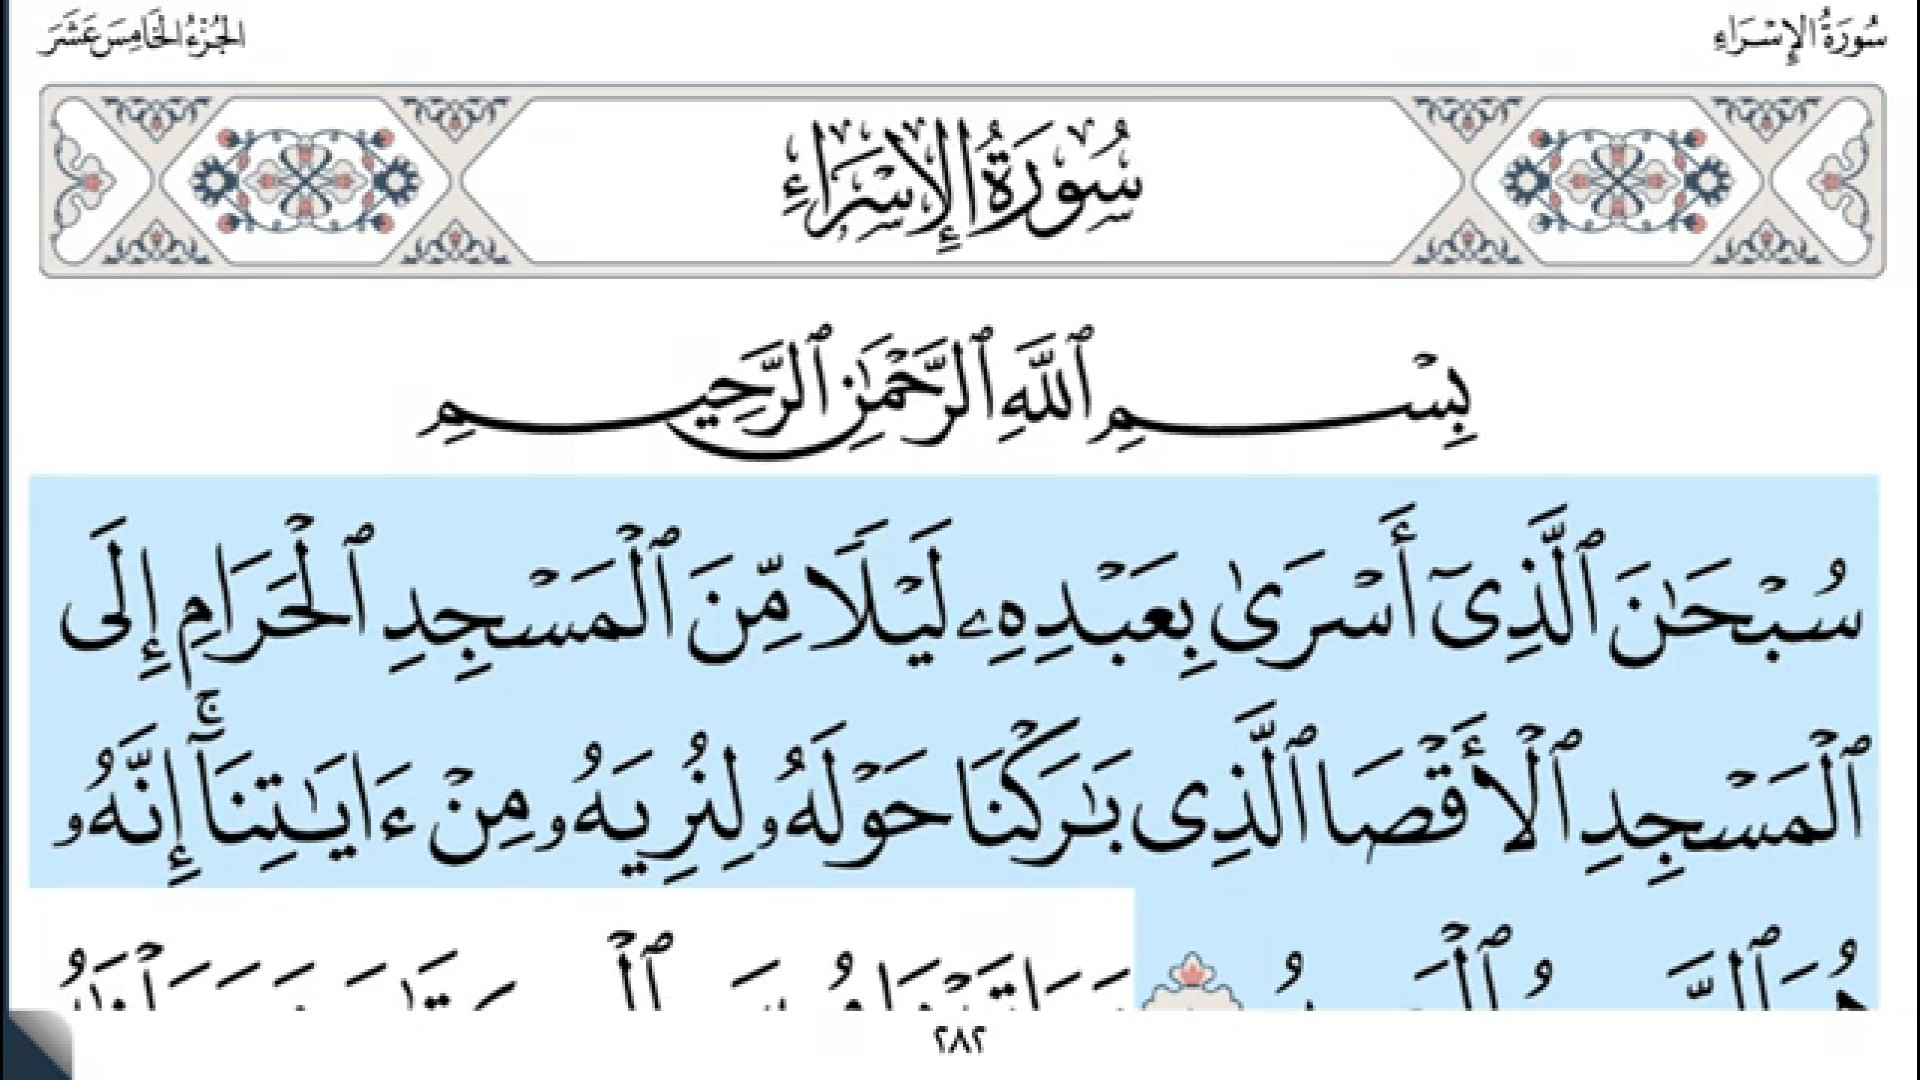 سُورَةُ الإِسْرَاءِ
الجُزْءُ الخَامِسَ عَشَرَ
سُورَةُ الإِسْرَاءِ
بِسْمِ ٱللَّهِ ٱلرَّحْمَٰنِ ٱلرَّحِيمِ
سُبْحَٰنَ ٱلَّذِىٓ أَسْرَىٰ بِعَبْدِهِۦ لَيْلًا مِّنَ ٱلْمَسْجِدِ ٱلْحَرَامِ إِلَى
ٱلْمَسْجِدِ ٱلْأَقْصَا ٱلَّذِى بَٰرَكْنَا حَوْلَهُۥ لِنُرِيَهُۥ مِنْ ءَايَٰتِنَآ ۚ إِنَّهُۥ
٢٨٢